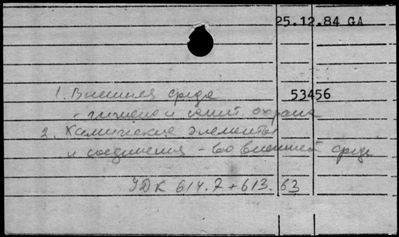 25.12.84 GA
1. Внешняя среда 53456
- гигиена и санит. охрана
2. Химические элементы
и соединения - во внешней среде
УДК 614.7+613.63